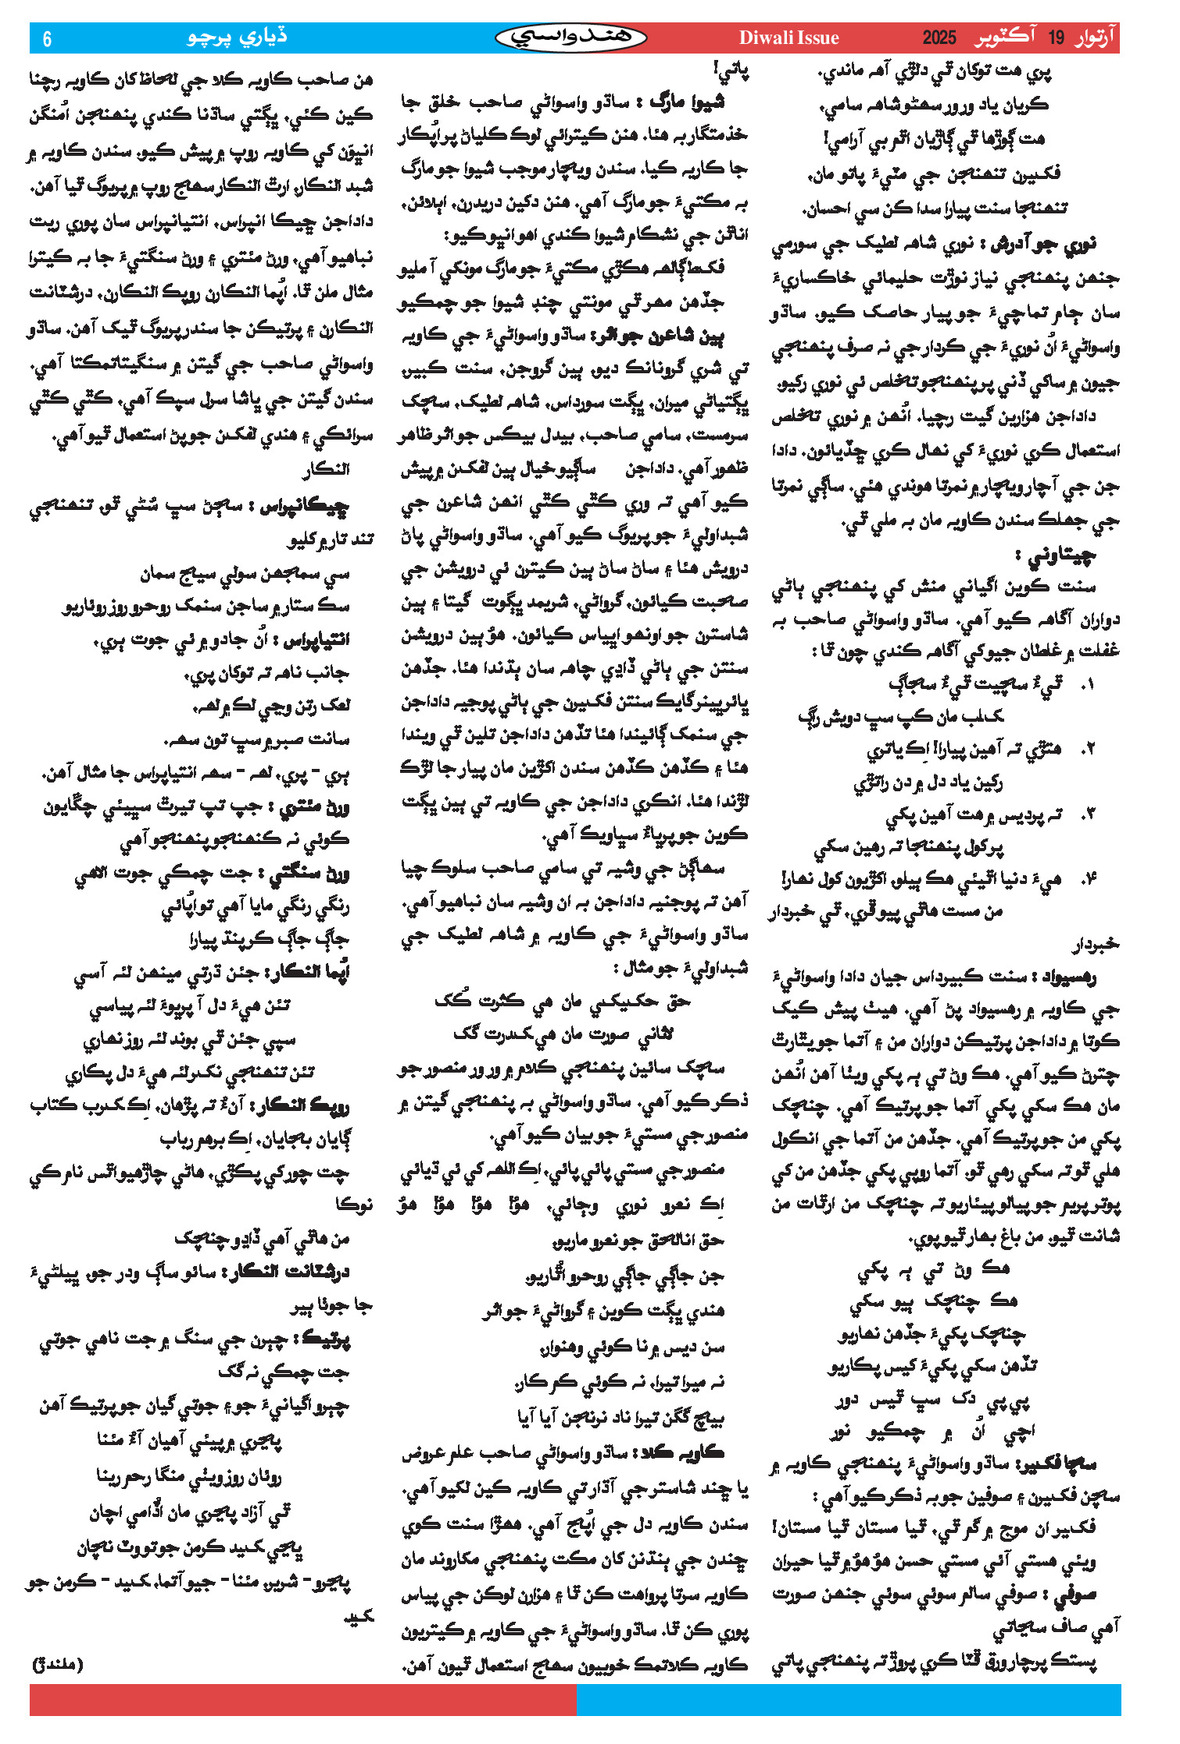 آرتوار 19 آڪٽوبر 2025
Diwali Issue
هندواسي
ڏياري پرچو
6
پري هت توکان ٿي دلڙي آهه ماندي.
ڪريان ياد ورور سهڻو شاهه سامي،
هت ڳوڙها ٿي ڳاڙيان اٿم بي آرامي!
فڪيرن تنهنجن جي مٽيءَ پاتو مان،
تنهنجا سنت پيارا سدا ڪن سي احسان.
نوري جو آدرش : نوري شاهه لطيف جي سورمي
جنهن پنهنجي نياز نوڙت حليمائي خاڪساريءَ
سان ڄام تماچيءَ جو پيار حاصڪ ڪيو. ساڌو
واسواڻيءَ اُن نوريءَ جي ڪردار جي نه صرف پنهنجي
جيون ۾ ساکي ڏني پر پنهنجو تخلص ئي نوري رکيو.
داداجن هزارين گيت رچيا. اُنهن ۾ نوري تخلص
استعمال ڪري نوريءَ کي نهال ڪري ڇڏيائون. دادا
جن جي آچار ويچار ۾ نمرتا هوندي هئي. ساڳي نمرتا
جي جهلڪ سندن ڪاويه مان به ملي ٿي.
چيتاوني :
سنت ڪوين اگياني منش کي پنهنجي ٻاڻي
دواران آگاهه ڪيو آهي. ساڌو واسواڻي صاحب به
غفلت ۾ غلطان جيو کي آگاهه ڪندي چون ٿا :
۱. ٿيءُ سچيت ٿيءُ سڄاڳ
ڪلب مان ڪپ سڀ دويش راڳ
۲. هتڙي ته آهين پيارا! اِڪ ياتري
رکين ياد دل ۾ دن راتڙي
۳. ته پرديس ۾ هت آهين پکي
پر کول پنهنجا ته رهين سکي
۴. هيءَ دنيا اٿيئي هڪ ٻيلو، اکڙيون کول نهار!
من مست هاٿي پيو ڦري، ٿي خبردار
خبردار
رهسيواد : سنت ڪبيرداس جيان دادا واسواڻيءَ
جي ڪاويه ۾ رهسيواد پڻ آهي. هيٺ پيش ڪيڪ
ڪوتا ۾ داداجن پرتيڪن دواران من ۽ آتما جو يٿارٿ
چترڻ ڪيو آهي. هڪ وڻ تي ٻه پکي ويٺا آهن اُنهن
مان هڪ سکي پکي آتما جو پرتيڪ آهي. چنچڪ
پکي من جو پرتيڪ آهي. جڏهن من آتما جي انڪول
هلي ٿو ته سکي رهي ٿو. آتما روپي پکي جڏهن من کي
پوتر پريم جو پيالو پيئاريو ته چنچڪ من ارٿات من
شانت ٿيو. من باغ بهار ٿيو پوي.
هڪ وڻ تي ٻه پکي
هڪ چنچڪ ٻيو سکي
چنچڪ پکيءَ جڏهن نهاريو
تڏهن سکي پکيءَ کيس پڪاريو
پي پي دک سڀ ٿيس دور
اچي اُن ۾ چمڪيو نور
سچا فڪير: ساڌو واسواڻيءَ پنهنجي ڪاويه ۾
سچن فڪيرن ۽ صوفين جو به ذڪر ڪيو آهي :
فڪير ان موج ۾ گم ٿي، ٿيا مستان ٿيا مستان!
ويئي هستي آئي مستي حسن هوُ هوُ ۾ ٿيا حيران
صوفي : صوفي سالم سوئي سوئي جنهن صورت
آهي صاف سڃاتي
پستڪ پرچار ورق ڦٽا ڪري پروڙ ته پنهنجي پاتي
پاتي!
شيوا مارگ : ساڌو واسواڻي صاحب خلق جا
خذمتگار به هئا. هنن ڪيترائي لوڪ ڪلياڻ پر اُپڪار
جا ڪاريه ڪيا. سندن ويچار موجب شيوا جو مارگ
به مڪتيءَ جو مارگ آهي. هنن دکين دريدرن، اٻلائن،
اناٿن جي نشڪام شيوا ڪندي اهو انڀو ڪيو:
فڪط ڳالهه هڪڙي مڪتيءَ جو مارگ مونکي آ مليو
جڏهن مهر ٿي مونتي چنڊ شيوا جو چمڪيو
ٻين شاعرن جو اثر: ساڌو واسواڻيءَ جي ڪاويه
تي شري گرونانڪ ديو، ٻين گروجن، سنت ڪبير،
ڀڳتياڻي ميران، ڀڳت سورداس، شاهه لطيف، سچڪ
سرمست، سامي صاحب، بيدل بيڪس جو اثر ظاهر
ظهور آهي. داداجن ساڳيو خيال ٻين لفڪن ۾ پيش
ڪيو آهي ته وري ڪٿي ڪٿي انهن شاعرن جي
شبداوليءَ جو پريوگ ڪيو آهي. ساڌو واسواڻي پاڻ
درويش هئا ۽ ساڻ ساڻ ٻين ڪيترن ئي درويشن جي
صحبت ڪيائون. گرواڻي، شريمد ڀڳوت گيتا ۽ ٻين
شاسترن جو اونهو اڀياس ڪيائون. هوُ ٻين درويشن
سنتن جي ٻاڻي ڏاڍي چاهه سان ٻڌندا هئا. جڏهن
ڀائرڀينر گايڪ سنتن فڪيرن جي ٻاڻي پوجيه داداجن
جي سنمک ڳائيندا هئا تڏهن داداجن تلين ٿي ويندا
هئا ۽ ڪڏهن ڪڏهن سندن اکڙين مان پيار جا لڙڪ
لڙندا هئا. انڪري داداجن جي ڪاويه تي ٻين ڀڳت
ڪوين جو پرڀاءُ سڀاويڪ آهي.
سهاڳڻ جي وشيه تي سامي صاحب سلوڪ چيا
آهن ته پوجنيه داداجن به ان وشيه سان نباهيو آهي.
ساڌو واسواڻيءَ جي ڪاويه ۾ شاهه لطيف جي
شبداوليءَ جو مثال :
حق حڪيڪي مان هي ڪثرت کُڪ
لاثاني صورت مان هي ڪدرت گڪ
سچڪ سائين پنهنجي ڪلام ۾ ورور منصور جو
ذڪر ڪيو آهي. ساڌو واسواڻي به پنهنجي گيتن ۾
منصور جي مستيءَ جو بيان ڪيو آهي.
منصور جي مستي پائي پائي، اِڪ اللهہ کي ئي ڌيائي
اِڪ نعرو نوري وڄائي، هوُ! هوُ! هوُ! هوُ
حق انالحق جو نعرو ماريو.
جن جاڳي جاڳي روحرو اُڻاريو.
هندي ڀڳت ڪوين ۽ گرواڻيءَ جو اثر
سن ديس ۾ نا ڪوئي وهنوار،
نه ميرا تيرا، نه ڪوئي ڪم ڪار.
بيچ گگن تيرا ناد نرنجن آيا آيا
ڪاويه ڪلا : ساڌو واسواڻي صاحب علم عروض
يا ڇند شاستر جي آڌار تي ڪاويه ڪين لکيو آهي.
سندن ڪاويه دل جي اُپڄ آهي. ههڙا سنت ڪوي
ڇندن جي ٻنڌنن کان مڪت پنهنجي مکاروند مان
ڪاويه سرتا پرواهت ڪن ٿا ۽ هزارن لوڪن جي پياس
پوري ڪن ٿا. ساڌو واسواڻيءَ جي ڪاويه ۾ ڪيتريون
ڪاويه ڪلاتمڪ خوبيون سهج استعمال ٿيون آهن.
هن صاحب ڪاويه ڪلا جي لحاظ کان ڪاويه رچنا
ڪين ڪئي، ڀڳتي ساڌنا ڪندي پنهنجن اُمنگن
انڀون کي ڪاويه روپ ۾ پيش ڪيو. سندن ڪاويه ۾
شبد النڪار، ارٿ النڪار سهج روپ ۾ پريوگ ٿيا آهن.
داداجن ڇيڪا انپراس، انتيانپراس سان پوري ريت
نباهيو آهي، ورڻ مئتري ۽ ورڻ سنگتيءَ جا به ڪيترا
مثال ملن ٿا. اُپما النڪارن روپڪ النڪارن، درشٽانت
النڪارن ۽ پرتيڪن جا سندر پريوگ ٿيڪ آهن. ساڌو
واسواڻي صاحب جي گيتن ۾ سنگيتاتمڪتا آهي.
سندن گيتن جي ڀاشا سرل سپڪ آهي. ڪٿي ڪٿي
سرائڪي ۽ هندي لفڪن جو پڻ استعمال ٿيو آهي.
النڪار
ڇيڪانپراس : سڄڻ سڀ سُڻي ٿو، تنهنجي
تند تار ۾ کليو
سي سمجهن سولي سيڄ سمان
سڪ ستار ۾ ساجن سنمک روحرو روز روئاريو
انتياپراس : اُن جادو ۾ ئي جوت ٻري،
جانب ناهه ته توکان پري،
لعڪ رتن وڃي لڪ ۾ لهہ،
سانت صبر ۾ سڀ تون سهہ.
ٻري - پري، لهہ - سهہ انتياپراس جا مثال آهن.
ورڻ مئتري : جپ تپ تيرٿ سڀيئي چڱايون
ڪوئي نه ڪنهنجو پنهنجو آهي
ورڻ سنگتي : جت چمڪي جوت الاهي
رنگي رنگي مايا آهي تو اُپائي
جاڳ جاڳ ڪر پنڌ پيارا
اُپما النڪار: جئن ڌرتي مينهن لئه آسي
تئن هيءَ دل آ پرڀوءَ لئه پياسي
سپي جئن ٿي بوند لئه روز نهاري
تئن تنهنجي نڪر لئه هيءَ دل پڪاري
روپڪ النڪار: آنءُ ته پڙهان، اِڪ ڪرب ڪتاب
ڳايان بجايان، اِڪ برهم رباب
چت چور کي پڪڙي، هاڻي چاڙهيو اٿس نام ڪي
نوڪا
من هاٿي آهي ڏاڍو چنچڪ
درشٽانت النڪار: سائو ساڳ ودر جو، ڀيلڻيءَ
جا جوٺا ٻير
پرتيڪ : چٻرن جي سنگ ۾ جت ناهي جوتي
جت چمڪي نه گک
چٻرو اگيانيءَ جو ۽ جوتي گيان جو پرتيڪ آهن
پڃري ۾ پيئي آهيان آءٌ مئنا
روئان روز ويٺي منگا رحم رينا
ٿي آزاد پڃري مان اڏامي اچان
ڀڃي ڪيد ڪرمن جو تو وٽ نچان
پڃرو - شرير، مئنا - جيو آتما، ڪيد - ڪرمن جو
ڪيد.
(ملندڙ)